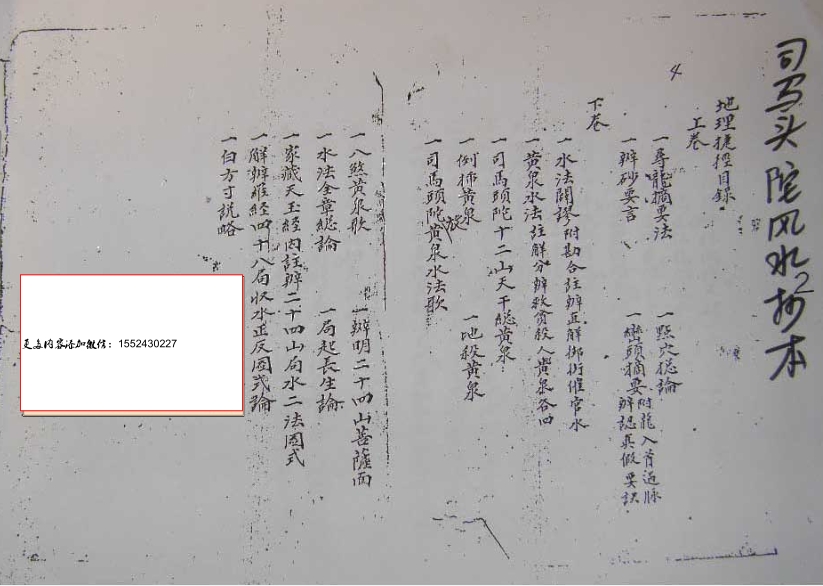 司马头陀风水抄本
2
4
地理捷徑目錄
上卷
一尋龍摘要法 一點穴總論
一辨砂要言 一巒頭摘要附龍入首過脉辨認真假要訣
下卷
一水法闢謬附勘合註辦正解
一黃泉水法註解分辦救貧殺人黃泉各四
一司馬頭陀十二山天干總黃泉
一例排黃泉 一地殺黃泉
一司馬頭陀黃泉水法歌
一八煞黃泉歌 一辦明二十四山菩薩面
一水法金章總論 一局起長生論
一家藏天玉經內註辦二十四山局水二法圖式
一解辦雜経四十八局收水正反圖式論
一白方寸説略
更多内容添加微信：1552430227